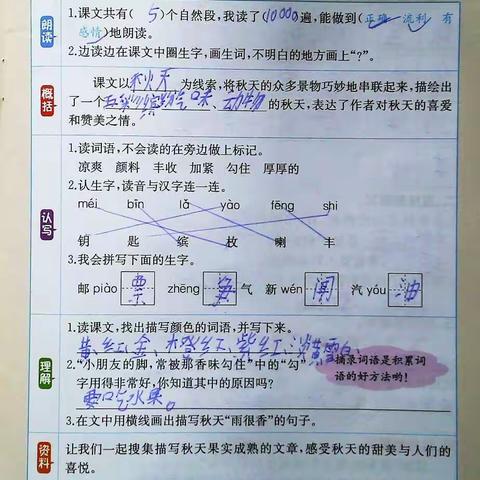 朗读
1.课文共有(5)个自然段,我读了(10000)遍,能做到(正确 流利 有
感情)地朗读。
2.边读边在课文中圈生字,画生词,不明白的地方画上“?”。
概括
课文以秋天为线索,将秋天的众多景物巧妙地串联起来,描绘出
了一个五彩缤纷、气味、动物的秋天,表达了作者对秋天的喜爱
和赞美之情。
认写
1.读词语,不会读的在旁边做上标记。
凉爽 颜料 丰收 加紧 勾住 厚厚的
2.认生字,读音与汉字连一连。
méi bīn lǎ yào fēng shi
钥 匙 缤 枚 喇 丰
3.我会拼写下面的生字。
邮piào 票 zhēng 气 新wén 闻 汽yóu 油
理解
1.读课文,找出描写颜色的词语,并写下来。
黄、红、金、橙红、紫红、淡黄、雪白
摘录词语是积累词
语的好方法哟!
2.“小朋友的脚,常被那香味勾住”中的“勾”
字用得非常好,你知道其中的原因吗?
要吃水果。
3.在文中用横线画出描写秋天“雨很香”的句子。
资料
让我们一起搜集描写秋天果实成熟的文章,感受秋天的甜美与人们的
喜悦。